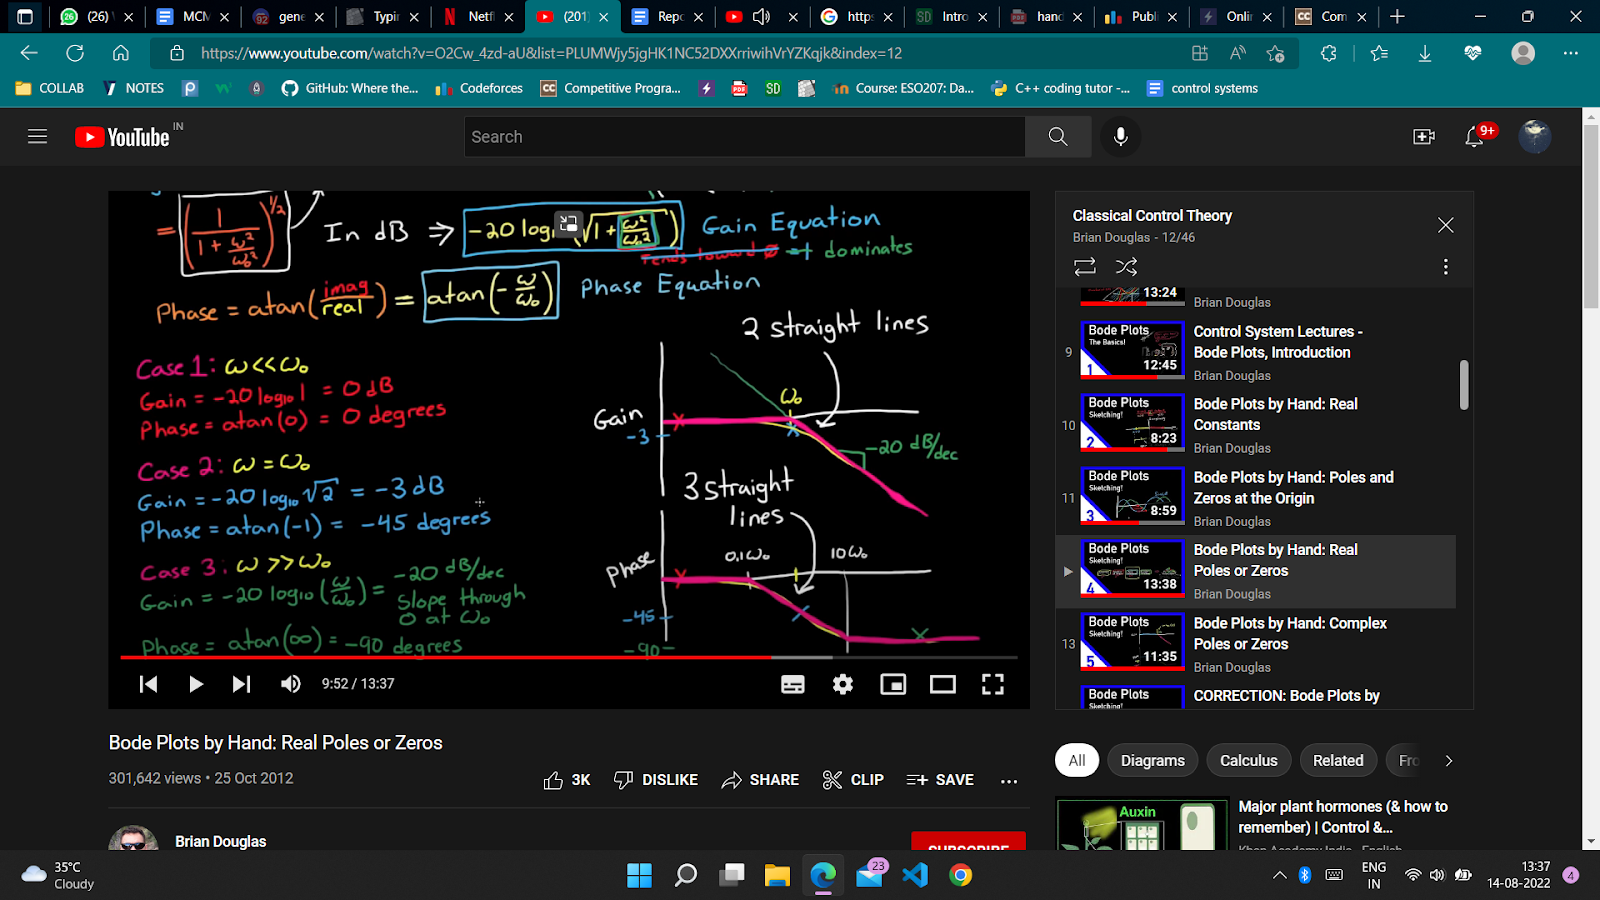 (26) W
MCM
92
gene
Typin
Netfl
(201
Repo
https
SD
Intro
hand
Publi
Onlin
CC
Com
https://www.youtube.com/watch?v=O2Cw_4zd-aU&list=PLUMWjy5jgHK1NC52DXXrriwihVrYZKqjk&index=12
COLLAB
NOTES
GitHub: Where the...
Codeforces
CC
Competitive Progra...
SD
Course: ESO207: Da...
C++ coding tutor -...
control systems
YouTube IN
Search
9+
= (1/(1+ω²/ω₀²))^1/2
In dB ⇒ -20 log₁ (√1+ω²/ω₀²)
Gain Equation
Tends toward 0 → dominates
Phase = atan(imag/real) = atan(-ω/ω₀)
Phase Equation
2 straight lines
Case 1: ω<<ω₀
Gain = -20 log₁₀ 1 = 0 dB
Phase = atan(0) = 0 degrees
Case 2: ω = ω₀
Gain = -20 log₁₀ √2 = -3 dB
Phase = atan(-1) = -45 degrees
Case 3: ω >> ω₀
Gain = -20 log₁₀(ω/ω₀) = -20 dB/dec
slope through
0 at ω₀
Phase = atan(∞) = -90 degrees
Gain
ω₀
-3
-20 dB/dec
3 straight
lines
Phase
0.1ω₀
10ω₀
-45
-90
9:52 / 13:37
Bode Plots by Hand: Real Poles or Zeros
301,642 views • 25 Oct 2012
3K
DISLIKE
SHARE
CLIP
SAVE
Brian Douglas
SUBSCRIBE
Classical Control Theory
Brian Douglas - 12/46
13:24
Brian Douglas
9
Bode Plots
The Basics!
1
12:45
Control System Lectures -
Bode Plots, Introduction
Brian Douglas
10
Bode Plots
Sketching!
2
8:23
Bode Plots by Hand: Real
Constants
Brian Douglas
11
Bode Plots
Sketching!
3
8:59
Bode Plots by Hand: Poles and
Zeros at the Origin
Brian Douglas
Bode Plots
Sketching!
4
13:38
Bode Plots by Hand: Real
Poles or Zeros
Brian Douglas
13
Bode Plots
Sketching!
5
11:35
Bode Plots by Hand: Complex
Poles or Zeros
Brian Douglas
Bode Plots
Sketching!
CORRECTION: Bode Plots by
All
Diagrams
Calculus
Related
Fro
Auxin
Major plant hormones (& how to
remember) | Control &...
Khan Academy India - English
35°C
Cloudy
23
ENG
IN
13:37
14-08-2022
4